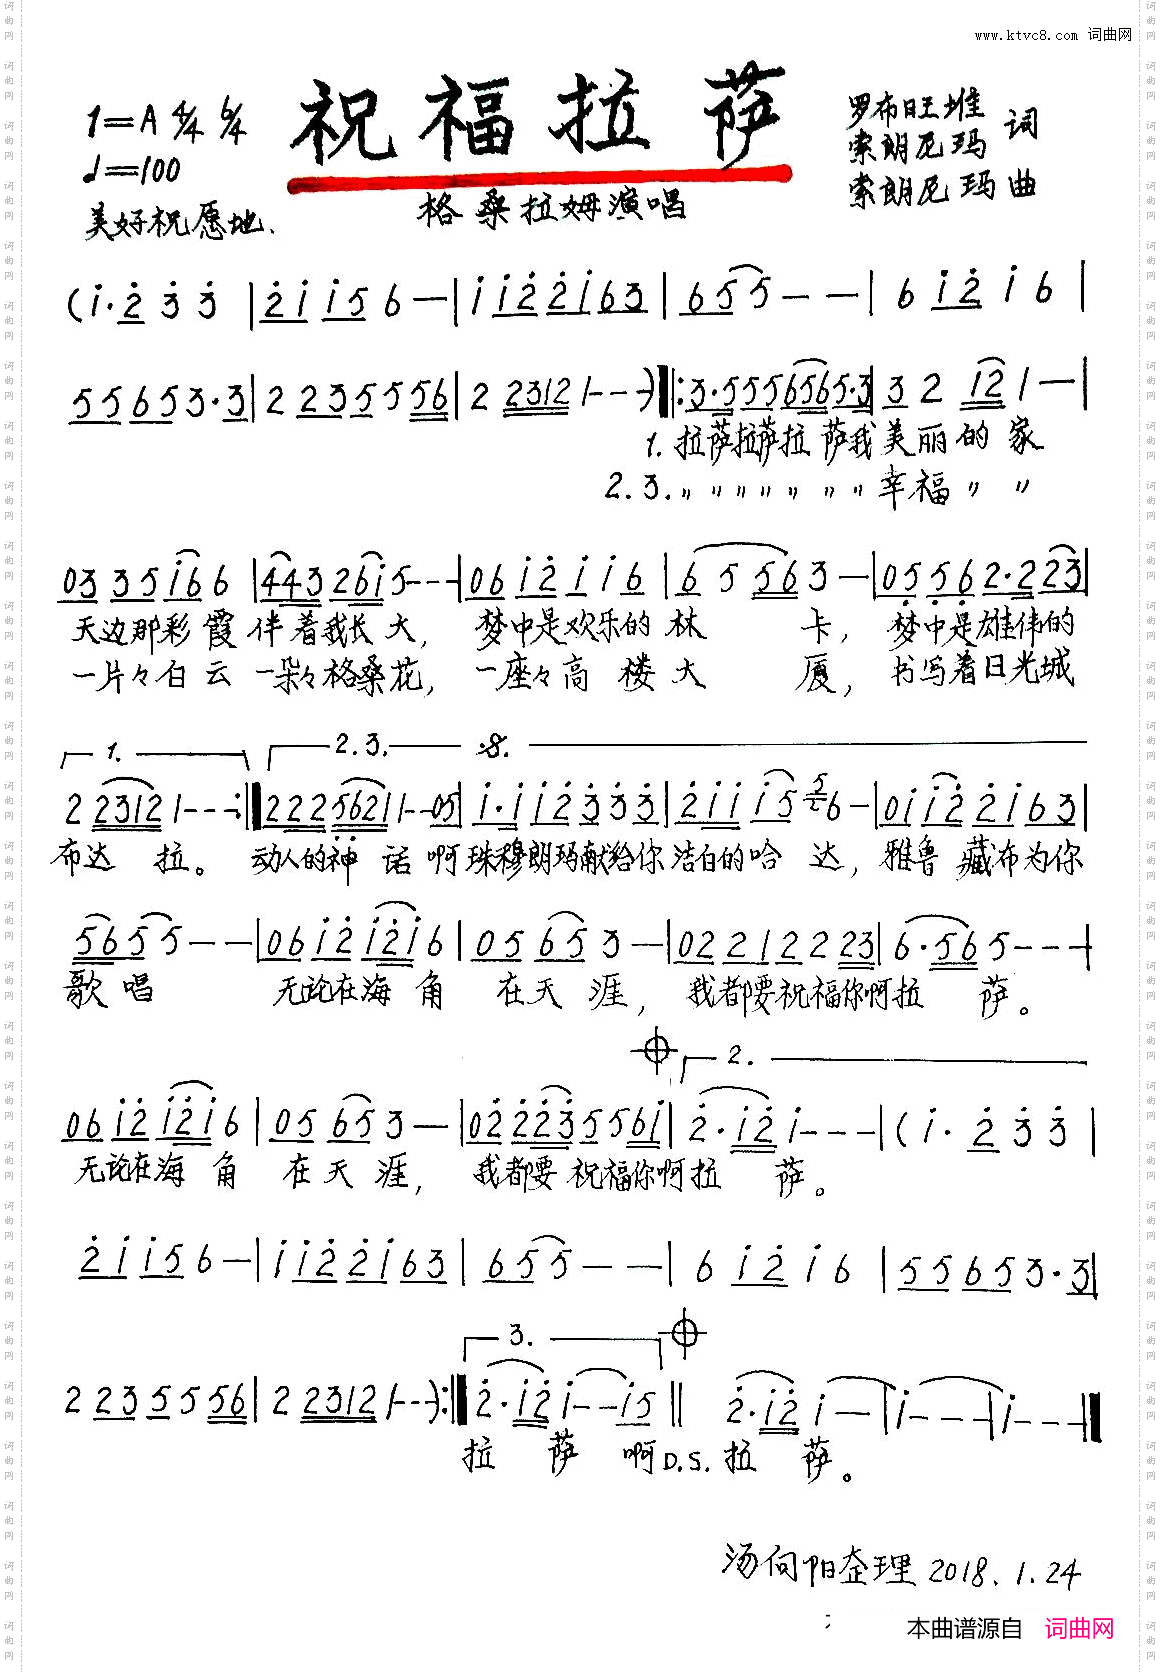 www.ktvc8.com 词曲网
1=A 4/4 6/4
祝福拉萨
罗布旺堆
索朗尼玛 词
♩=100
索朗尼玛 曲
美好祝愿地.
格桑拉姆演唱
(i·2 3 3 | 2 i i 5 6 — | i i 2 2 i 6 3 | 6 5 5 — — | 6 i 2 i 6 |
5 5 6 5 3·3 | 2 2 3 5 5 5 6 | 2 2 3 1 2 1 - - ) ‖: 3·5 5 5 6 5 6 5·3 | 3 2 1 2 1 — |
1. 拉萨拉萨拉 萨我 美丽的 家
2.3. 〃〃〃〃〃〃〃〃 幸福 〃 〃
0 3 3 5 i 6 6 | 4 4 3 2 6 i 5 - - - | 0 6 i 2 i i 6 | 6 5 5 6 3 — | 0 5 5 6 2·2 2 3 |
天边那彩霞 伴着我长大, 梦中是欢乐的 林 卡, 梦中是雄伟的
一片々白云 一朵々格桑花, 一座々高楼大 厦, 书写着日光城
1. 2.3. 𝄋.
2 2 3 1 2 1 - - :‖ 2 2 2 5 6 2 1 1 - - 0 5 | i·i i 2 3 3 3 | 2 i i i 5 6 — | 0 i i 2 2 i 6 3 |
布达 拉。 动人的神 话 啊 珠穆朗玛献给你 洁白的哈 达, 雅鲁 藏布为你
5 6 5 5 — — | 0 6 i 2 i 2 i 6 | 0 5 6 5 3 — | 0 2 2 1 2 2 2 3 | 6·5 6 5 - - - |
歌唱 无论在海 角 在天 涯, 我都要祝福你啊拉 萨。
𝄌 2.
0 6 i 2 i 2 i 6 | 0 5 6 5 3 — | 0 2 2 2 3 5 5 6 i | 2·i 2 i - - - | (i· 2 3 3 |
无论在海 角 在天 涯, 我都要 祝福你啊拉 萨。
2 i i 5 6 — | i i 2 2 i 6 3 | 6 5 5 — — | 6 i 2 i 6 | 5 5 6 5 3·3 |
3. 𝄌
2 2 3 5 5 5 6 | 2 2 3 1 2 1 - - ) :‖ 2·i 2 i - - i 5 ‖ 2·i 2 i — | i - - - | i - - - ‖
拉 萨 啊 D.S. 拉 萨。
汤向阳整理 2018.1.24
本曲谱源自 词曲网